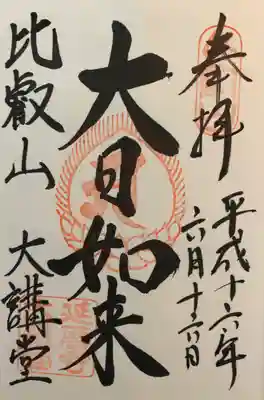 奉拝
平成十六年
六月十六日
大日如来
比叡山 大講堂